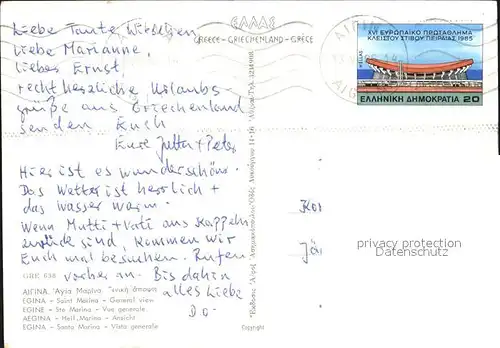 ΕΛΛΑΣ
GREECE - GRIECHENLAND - GRÈCE
Liebe Tante
Liebe Marianne,
liebes Ernst,
recht herzliche Urlaubs-
grüße aus Griechenland
senden Euch
Eure Jutta + Peter
Hier ist es wunderschön.
Das Wetter ist herrlich +
das Wasser warm.
Wenn Mutti + Vati aus Kappeln
zurück sind, kommen wir
Euch mal besuchen. Rufen
vorher an. Bis dahin
alles Liebe
D.O.
GRE 838
ΑΙΓΙΝΑ. Ἁγία Μαρίνα. Γενική ἄποψη
EGINA - Saint Marina - General view
EGINE - Ste Marina - Vue generale
AEGINA - Heil. Marina - Ansicht
EGINA - Santa Marina - Vista generale
Copyright
XVI ΕΥΡΩΠΑΪΚΟ ΠΡΩΤΑΘΛΗΜΑ
ΚΛΕΙΣΤΟΥ ΣΤΙΒΟΥ ΠΕΙΡΑΙΑΣ 1985
HELLAS
ΕΛΛΗΝΙΚΗ ΔΗΜΟΚΡΑΤΙΑ 20
privacy protection
Datenschutz